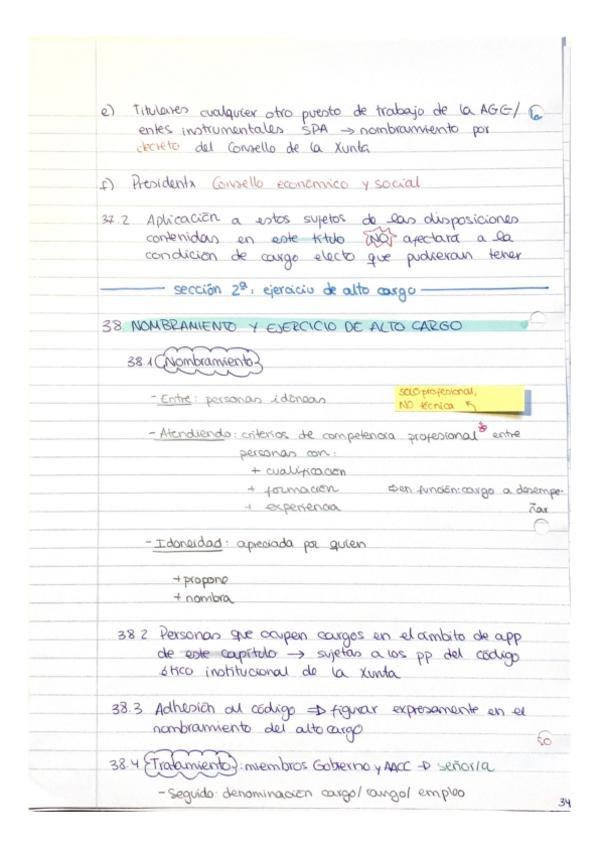 e) Titulares cualquier otro puesto de trabajo de la AGE/
entes instrumentales SPA → nombramiento por
decreto del Consello de la Xunta
f) Presidentx Consello económico y social
37.2 Aplicación a estos sujetos de las disposiciones
contenidas en este título NO afectará a la
condición de cargo electo que pudieran tener
sección 2ª: ejercicio de alto cargo
38 NOMBRAMIENTO Y EJERCICIO DE ALTO CARGO
38.1 Nombramiento
- Entre: personas idóneas
SOLO profesional,
NO técnica
- Atendiendo: criterios de competencia profesional entre
personas con:
+ cualificación
+ formación ⇒ en función: cargo a desempe-
+ experiencia ñar
- Idoneidad: apreciada por quien
+ propone
+ nombra
38.2 Personas que ocupen cargos en el ámbito de app
de este capítulo → sujetas a los pp del código
ético institucional de la Xunta
38.3 Adhesión al código ⇒ figurar expresamente en el
nombramiento del alto cargo
50
38.4 Tratamiento: miembros Gobierno y AACC → señor/a
- Seguido: denominación cargo/ rango/ empleo
34